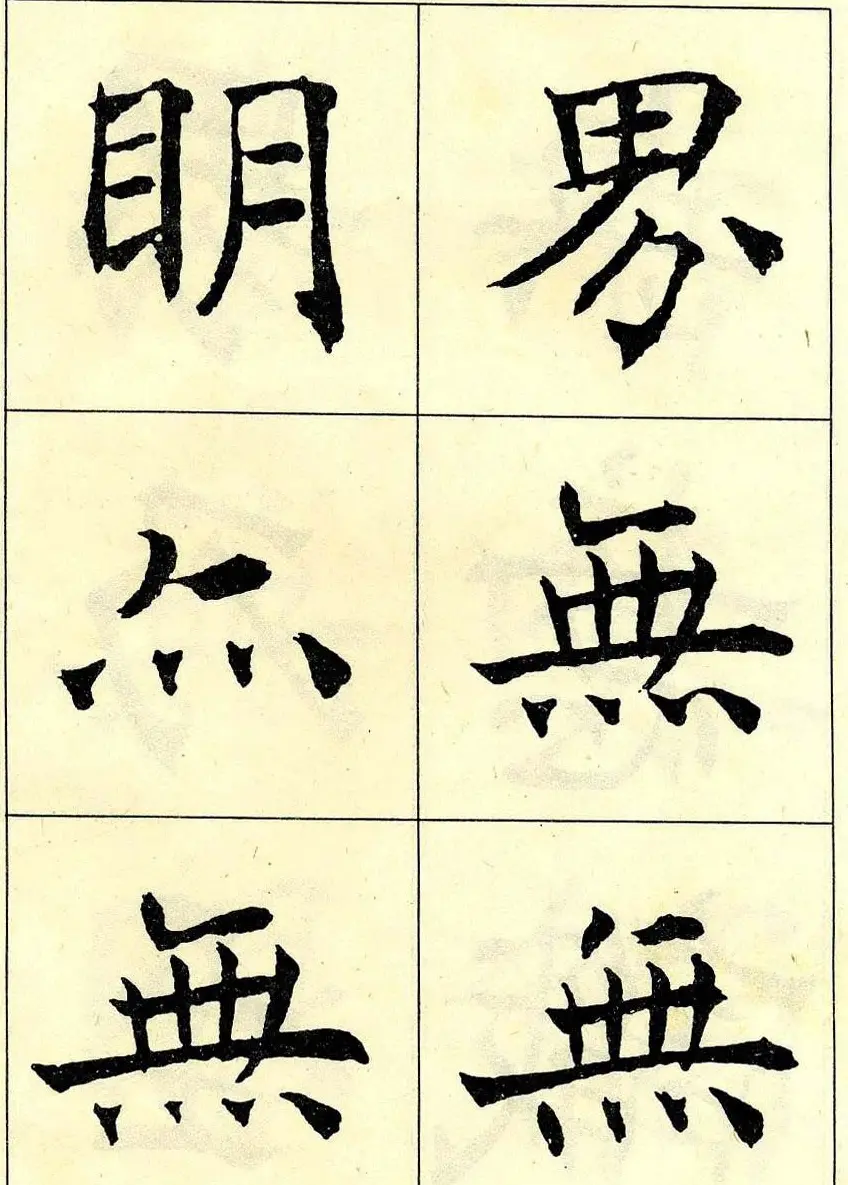 界無無
眀亦無